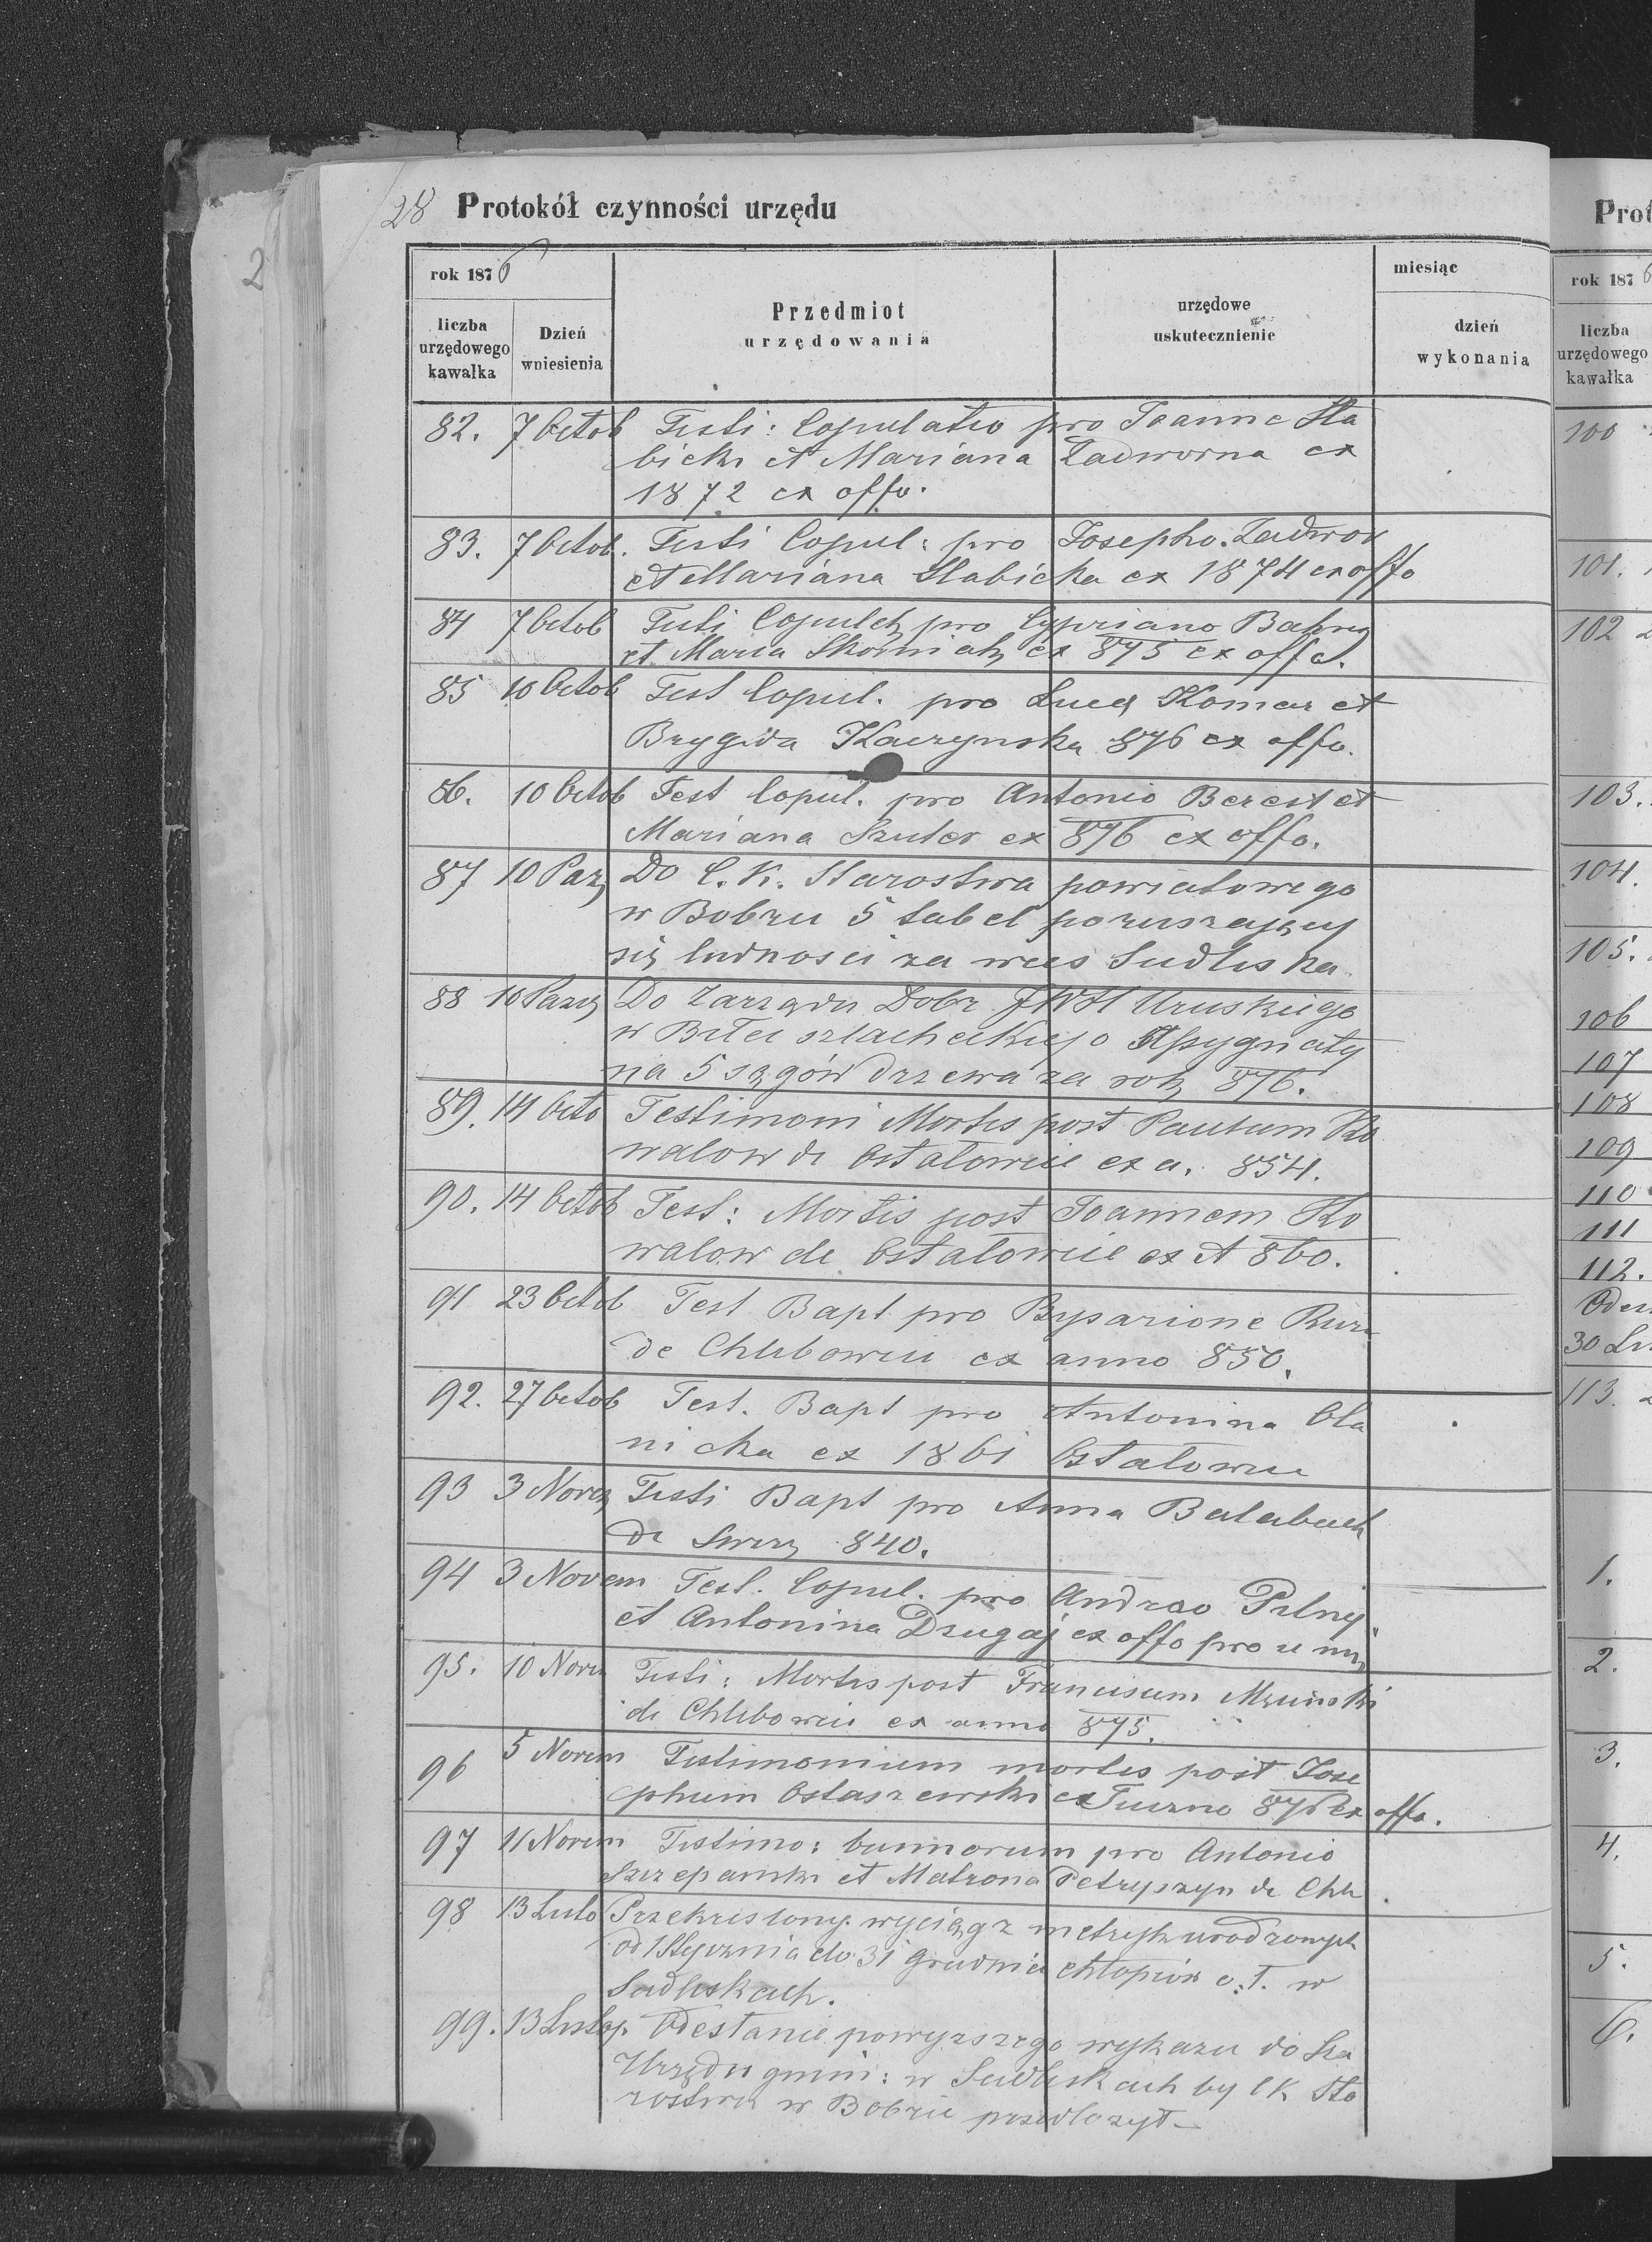 28 Protokół czynności urzędu
2
rok 1876
miesiąc
liczba urzędowego kawałka
Dzień wniesienia
Przedmiot urzędowania
urzędowe uskutecznienie
dzień wykonania
82. 7 Octob Testi: Copulatio pro Joanne Sła
bicki et Mariana Zadworna ex
1872 ex offo.
83. 7 Octob. Testi Copul: pro Josepho Zadwor
et Mariana Słabicka ex 1874 ex offo
84 7 Octob Testi pro Cypriano
et Maria ex 875 ex offo.
85 10 Octob Test Copul. pro Luca Komar et
Brygida Kaczynska 876 ex offo.
86. 10 Octob Test Copul. pro Antonio Berest et
Mariana Szuter ex 876 ex offo.
87 10 Paz Do C. K. Starostwa powiatowego
w Bobru 5 tabel poruszający
się ludnosci za wies Sudliska
88 10 Pazd Do Zarządu Dobr JWH Uruskiego
w szlacheckiej o Assygnaty
na 5 sągów drzewa za rok 876.
89. 14 Octo Testimoni Mortis post Ko
walow de Ostalowice ex a. 854.
90. 14 Octob Test: Mortis post Joannem Ko
walow de Ostalowice ex A 860.
91 23 Octob Test Bapt pro
de Chlibowice ex anno 850.
92. 27 Octob Test. Bapt pro Antonina Ola
nicka ex 1861 Ostalowice
93 3 Novem Testi Bapt pro Anna Balabuch
de 840.
94 3 Novem Test. Copul. pro Andreo
et Antonina Drugaj ex offo pro
95. 10 Nove Testi: Mortis post Franciscum
de Chlibowice ex anno 875.
96 5 Novem Testimonium mortis post Jose
phum Ostaszewski ex Tuczno 876 ex offo.
97 11 Novem Testimo: bannorum pro Antonio
Szczepanski et Matrona Petryszyn de Chli
98 13 Listo wyciąg z metryk urodzonych
od 1 Stycznia do 31 Grudnia chłopców w
Sudliskach.
99. 13 Listop. Odesłanie powyzszego wykazu do
Urzędu gmin: w Sudliskach by CK Sta
rostwu w Bobrce przedłozył
Prot
rok 1876
liczba urzędowego kawałka
100
101.
102
103.
104.
105.
106
107
108
109
110
111
112.
30
113.
1.
2.
3.
4.
5.
6.